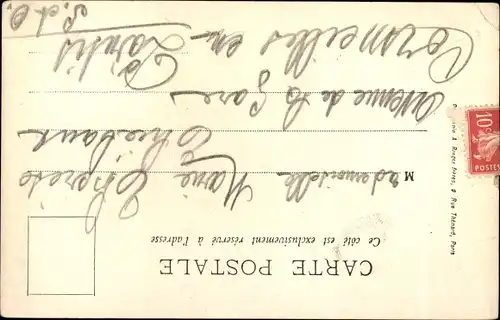 CARTE POSTALE
Ce côté est exclusivement réservé à l'adresse
Mademoiselle Marie
Avenue de la Gare
Cormeilles en
Parisis
S. et O.
10c
POSTES
Rue Thénard, Paris